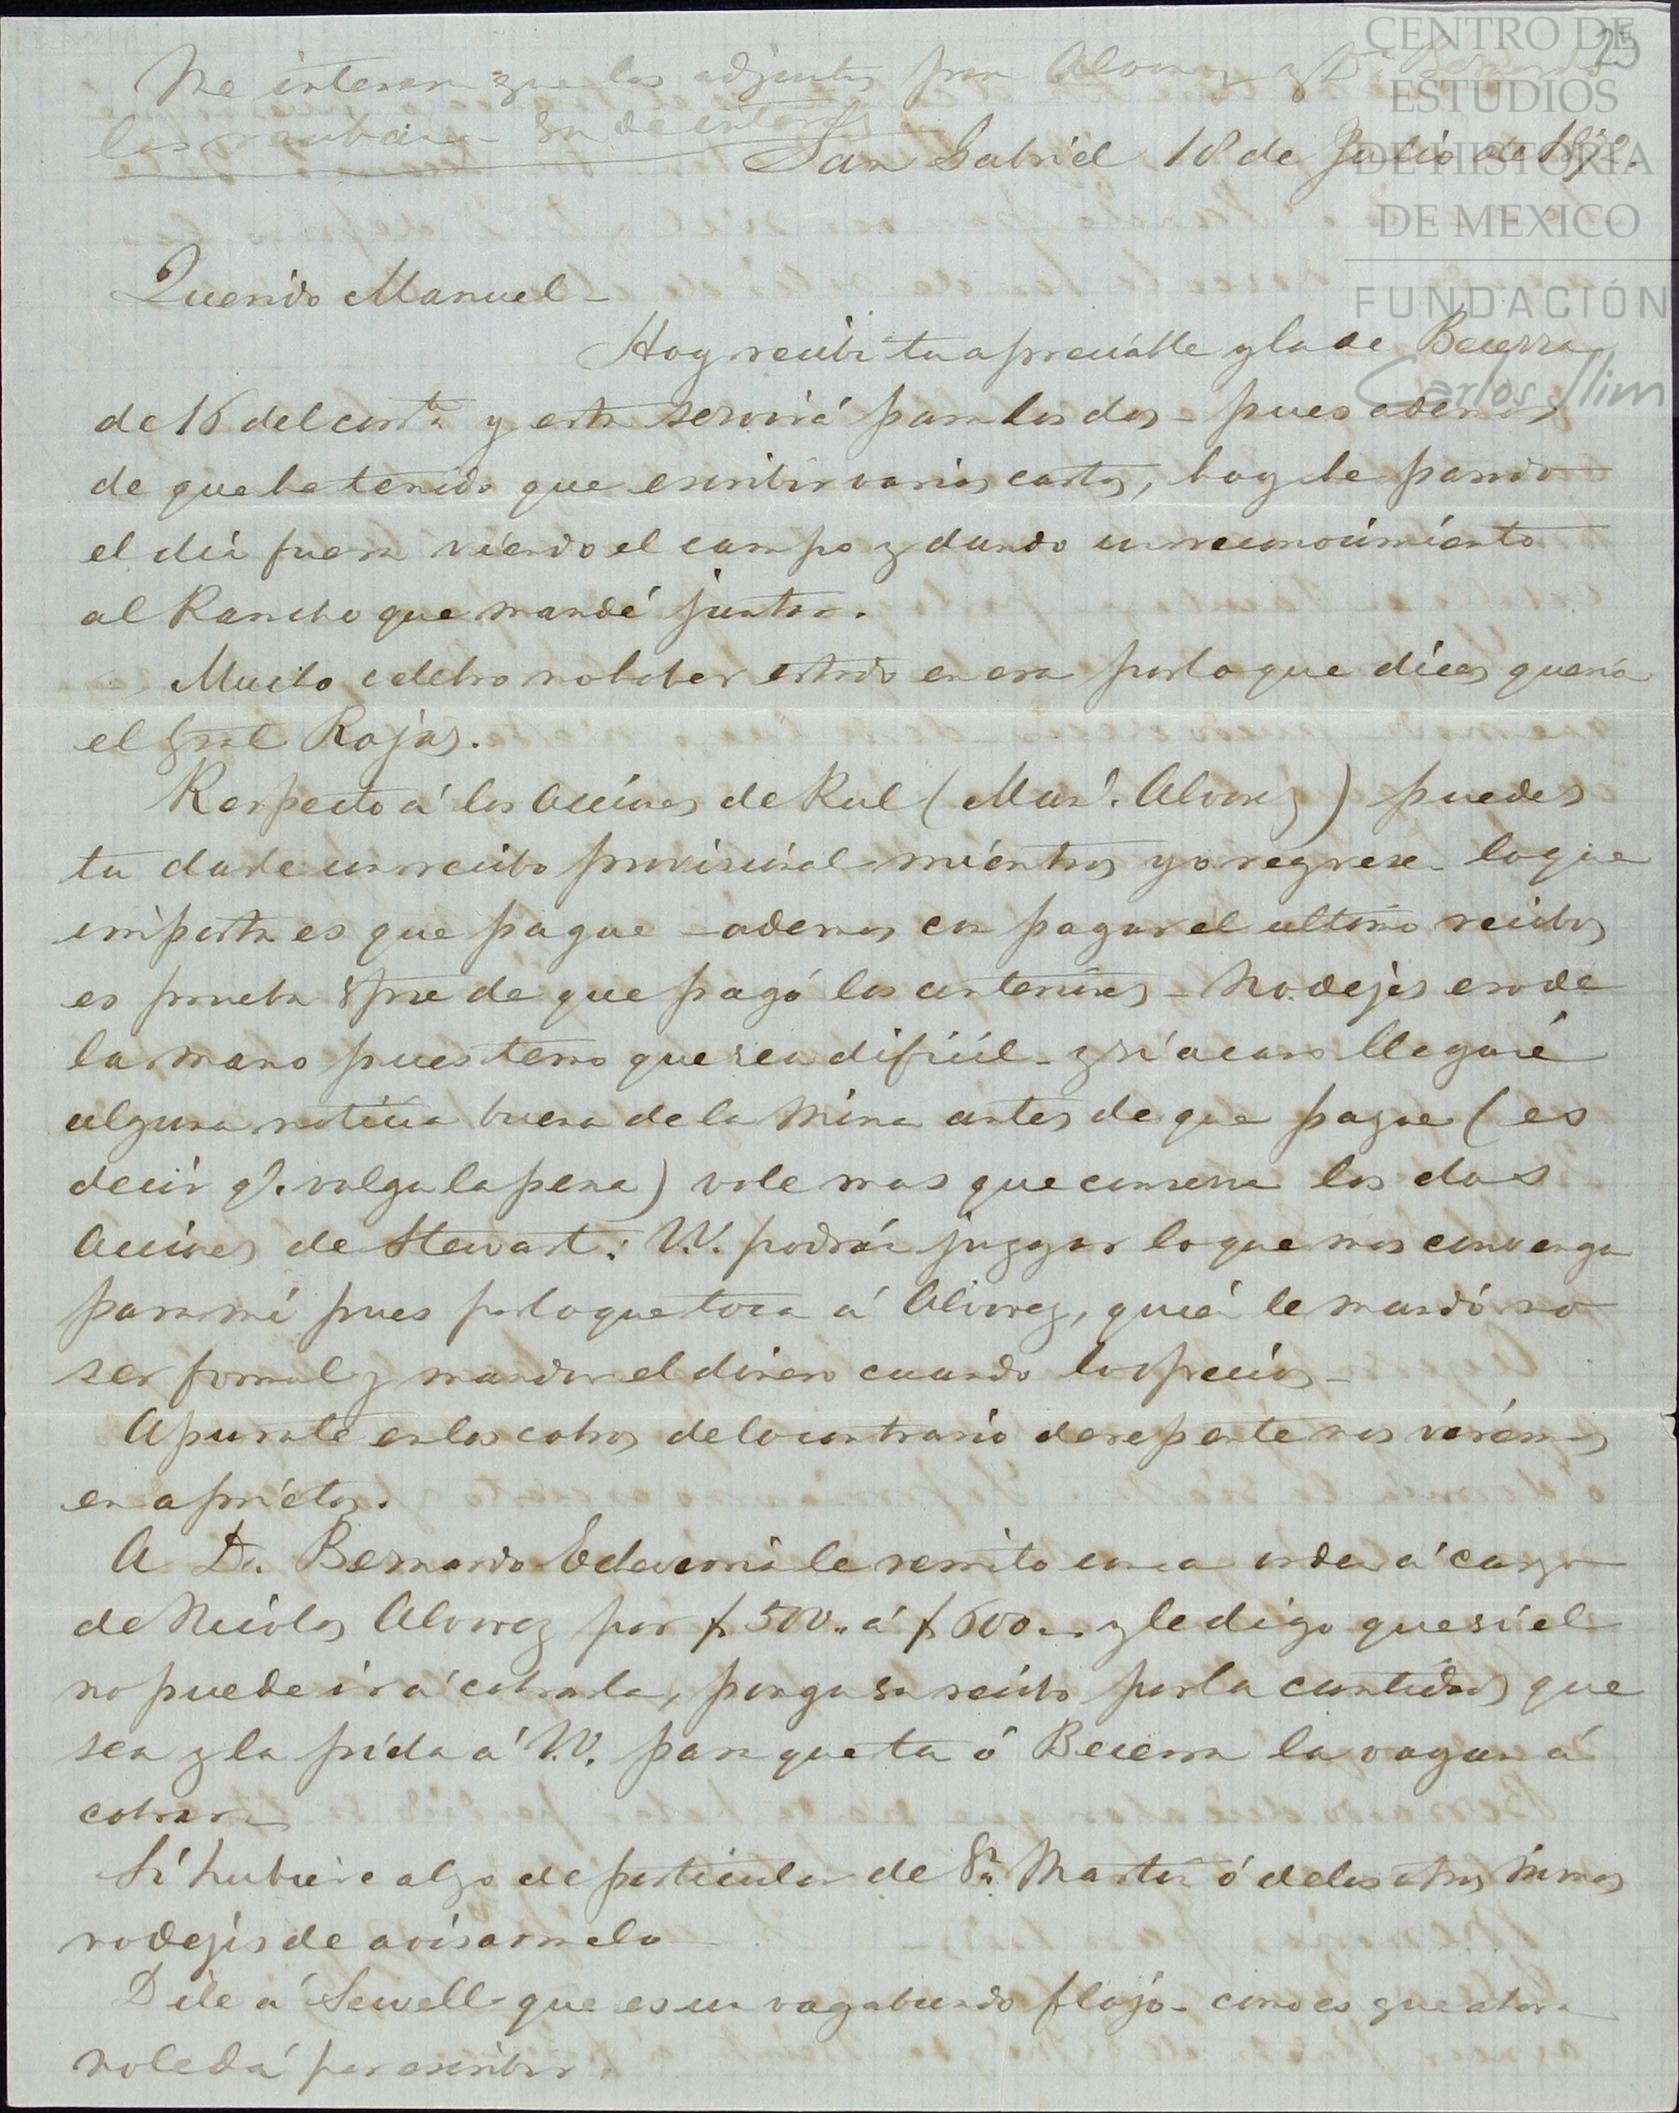 Me interesa que las adjuntas para Alvarez y Dn Bernardo
las reciban
23
San Gabriel 18 de Julio de
Querido Manuel -
Hoy recibi tu apreciable y la de Becerra
de 16 del corrte y esta servirá para los dos - pues ademas
de que he tenido que escribir varias cartas, hoy he pasado
el dia fuera viendo el campo y dando un reconocimiento
al Rancho que mandé juntar.
Mucho celebro no haber estado en esa por lo que dices queria
el Gral Rojas.
Respecto á las Acciones de Rul (Marl. Alvarez) puedes
tu darle un recibo provisional mientras yo regrese - lo que
importa es que pague - ademas con pagar el ultimo recibo,
es prueba spre de que pagó los anteriores - No dejes eso de
la mano pues temo que sea dificil - y si acaso llegare
alguna noticia buena de la Mina antes de que pague (es
decir q. valga la pena) vale mas que conserve las dos
Acciones de Stewart: V.V. podrán juzgar lo que mas convenga
para mi pues por lo que toca á Alvarez, quién le mandó no
ser formal y mandar el dinero cuando lo ofreció -
Apurate en los cobros de lo contrario de repente nos verémos
en aprietos.
A Dn. Bernardo Echeverria le remito una orden á cargo
de Nicolas Alvarez por $500.. á $600.. y le digo que si el
no puede ir á cobrarla, ponga su recibo por la cantidad que
sea y la pida á V.V. para que tu ó Becerra la vayan á
cobrar.
Si hubiere algo de particular de Sn. Martin ó de las otras minas
no dejes de avisarmelo
Dile á Sewell que es un vagabundo flojo - como es que ahora
no le dá por escribir.
CENTRO DE
ESTUDIOS
DE HISTORIA
DE MEXICO
FUNDACIÓN
Carlos Slim